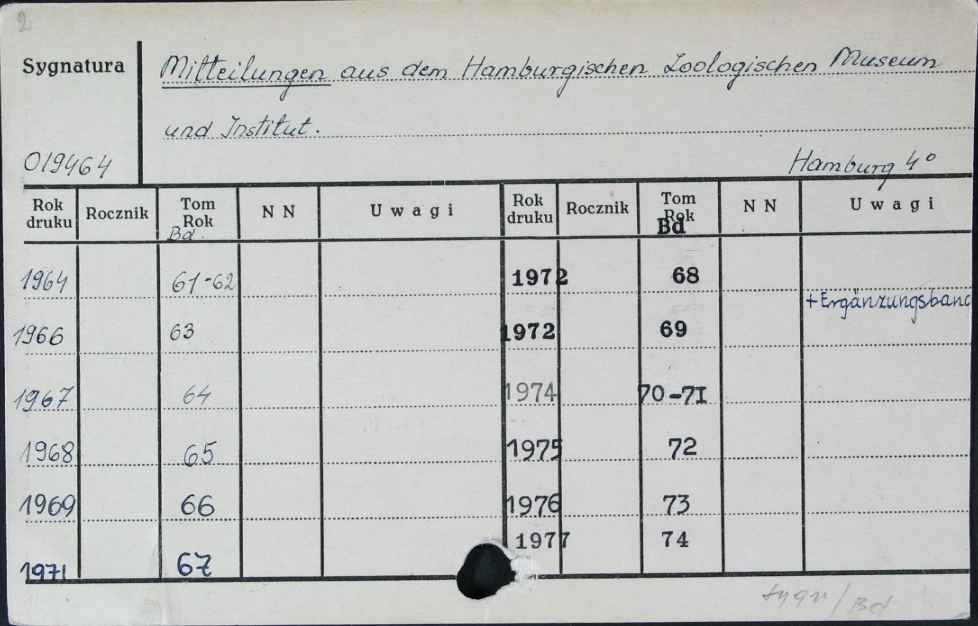 2
Sygnatura
Mitteilungen aus dem Hamburgischen Zoologischen Museum
und Institut.
019464
Hamburg 4°
Rok druku Rocznik Tom Rok Bd. NN Uwagi Rok druku Rocznik Tom Rok Bd NN Uwagi
1964 61-62 1972 68
+Ergänzungsband
1966 63 1972 69
1967 64 1974 70-71
1968 65 1975 72
1969 66 1976 73
1977 74
1971 67
sygn/Bd